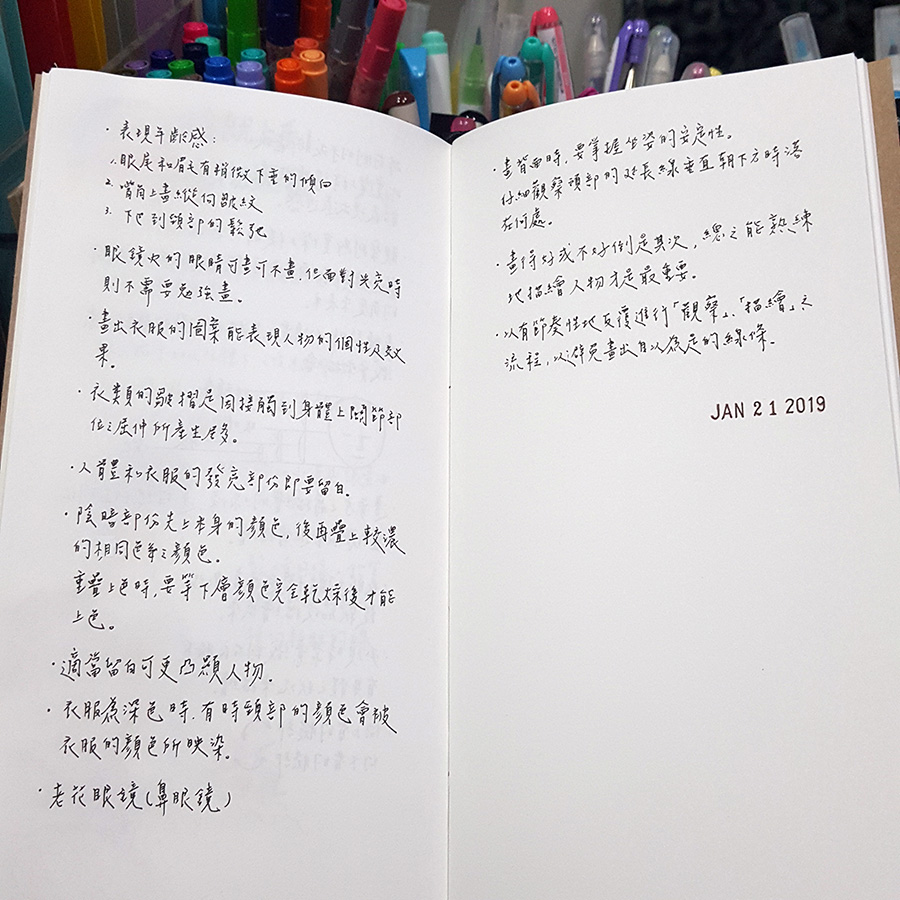 ・表現年齡感:
1. 眼尾和眉毛有稍微下垂的傾向
2. 嘴角上畫縱向皺紋
3. 下巴到頸部的鬆弛
・眼鏡內的眼睛可畫可不畫,但面對光亮時
則不需要勉強畫。
・畫出衣服的圖案能表現人物的個性及效
果。
・衣類的皺摺是因接觸到身體上關節部
位之屈伸所產生居多。
・人體和衣服的發亮部份即要留白。
・陰暗部份先上本身的顏色,後再疊上較濃
的相同色系之顏色。
重疊上色時,要等下層顏色完全乾燥後才能
上色。
・適當留白可更凸顯人物。
・衣服為深色時,有時頸部的顏色會被
衣服的顏色所映染。
・老花眼鏡(鼻眼鏡)
・畫背面時,要掌握坐姿的安定性。
仔細觀察頭部的延長線垂直朝下方時落
在何處。
・畫得好或不好倒是其次,總之能熟練
地描繪人物才是最重要。
・以有節奏性地反覆進行「觀察」、「描繪」之
流程,以避免畫出自以為是的線條。
JAN 21 2019